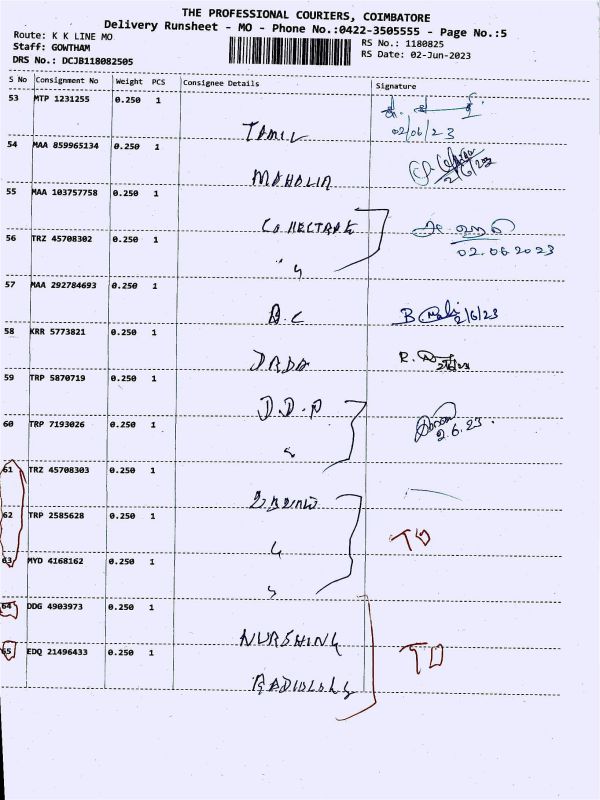 THE PROFESSIONAL COURIERS, COIMBATORE
Delivery Runsheet - MO - Phone No.:0422-3505555 - Page No.:5
Route: K K LINE MO
Staff: GOWTHAM
DRS No.: DCJB118082505
RS No.: 1180825
RS Date: 02-Jun-2023
S No Consignment No Weight PCS Consignee Details Signature
53 MTP 1231255 0.250 1
TAMIL
02/06/23
54 MAA 859965134 0.250 1
MAHALIR
2/6/23
55 MAA 103757758 0.250 1
COLLECTRATE
02.06.2023
56 TRZ 45708302 0.250 1
57 MAA 292784693 0.250 1
B.C
2/6/23
58 KRR 5773821 0.250 1
DRDA
59 TRP 5870719 0.250 1
D.D.P
2.6.23.
60 TRP 7193026 0.250 1
61 TRZ 45708303 0.250 1
62 TRP 2585628 0.250 1
TD
63 MYD 4168162 0.250 1
64 DDG 4903973 0.250 1
NURSHING
65 EDQ 21496433 0.250 1
TD
RADIOLOGY